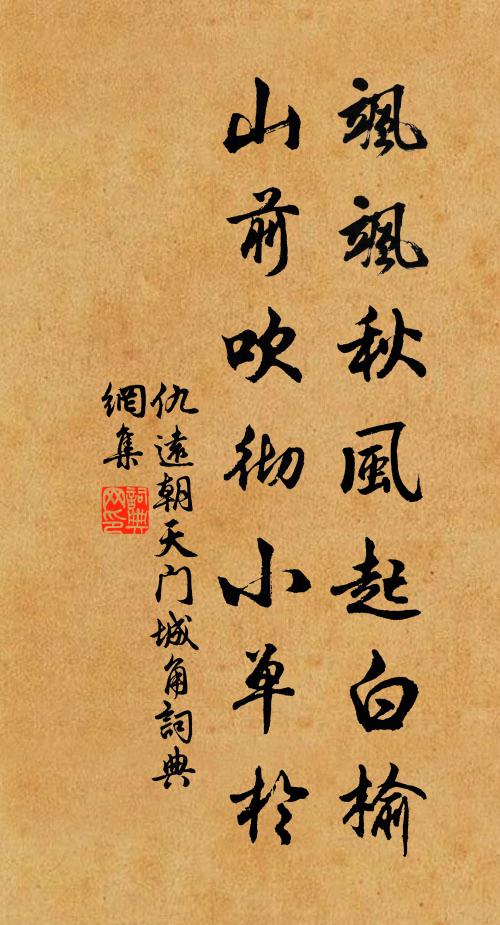 颯颯秋風起白榆
山前吹彻小单於
仇遠朝天门城角詞典
網集
詞典
网印